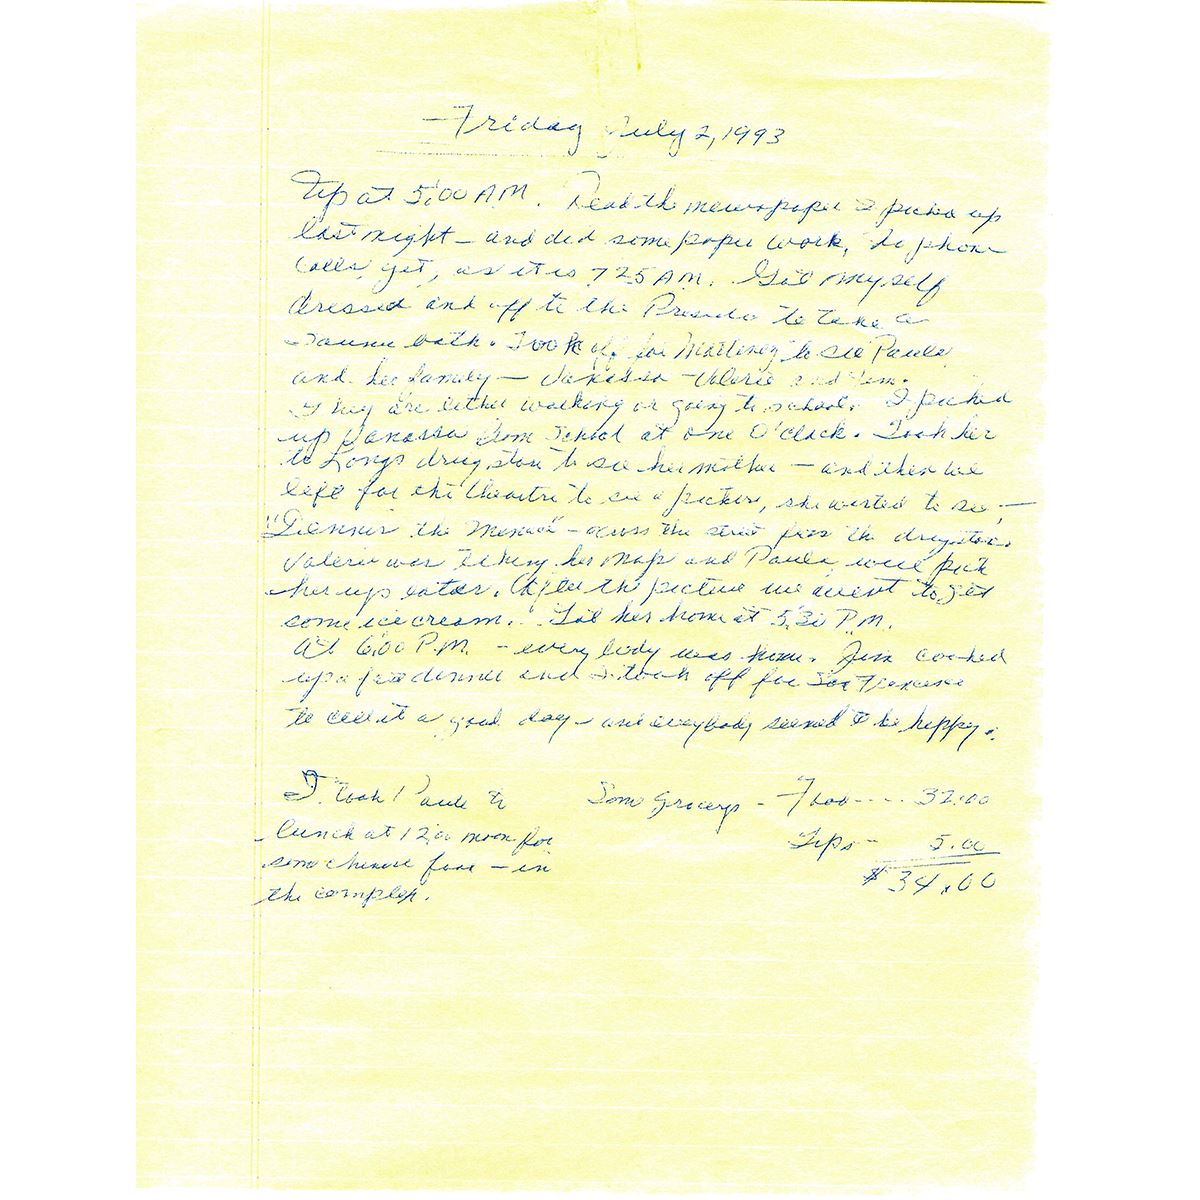 Friday July 2, 1993
Up at 5:00 AM. Read the newspaper I picked up
last night - and did some paper work, No phone
calls yet, as it is 7 25 AM. Got myself
dressed and off to the Presidio to take a
Sauna bath. Took off for Martinez to see Paula
and her family - Vanassa - Valerie and Jim.
They are either walking or going to school. I picked
up Vanassa from School at one O'Clock. Took her
to Longs drug store to see her mother - and then we
left for the theatre to see a picture, she wanted to see -
"Dennis the Menace - across the street from the drugstore.
Valerie was taking her nap and Paula will pick
her up later. After the picture we went to get
some ice cream. Got her home at 5:30 P.M.
At 6:00 P.M. - everybody was home. Jim cooked
up a dinner and I took off for San Francisco
to call it a good day - and everybody seemed to be happy.
I took Paula to
lunch at 12:00 noon for
some chinese food - in
the complex.
Some Grocerys - Food ---- 32.00
Tips -- 5.00
$34.00